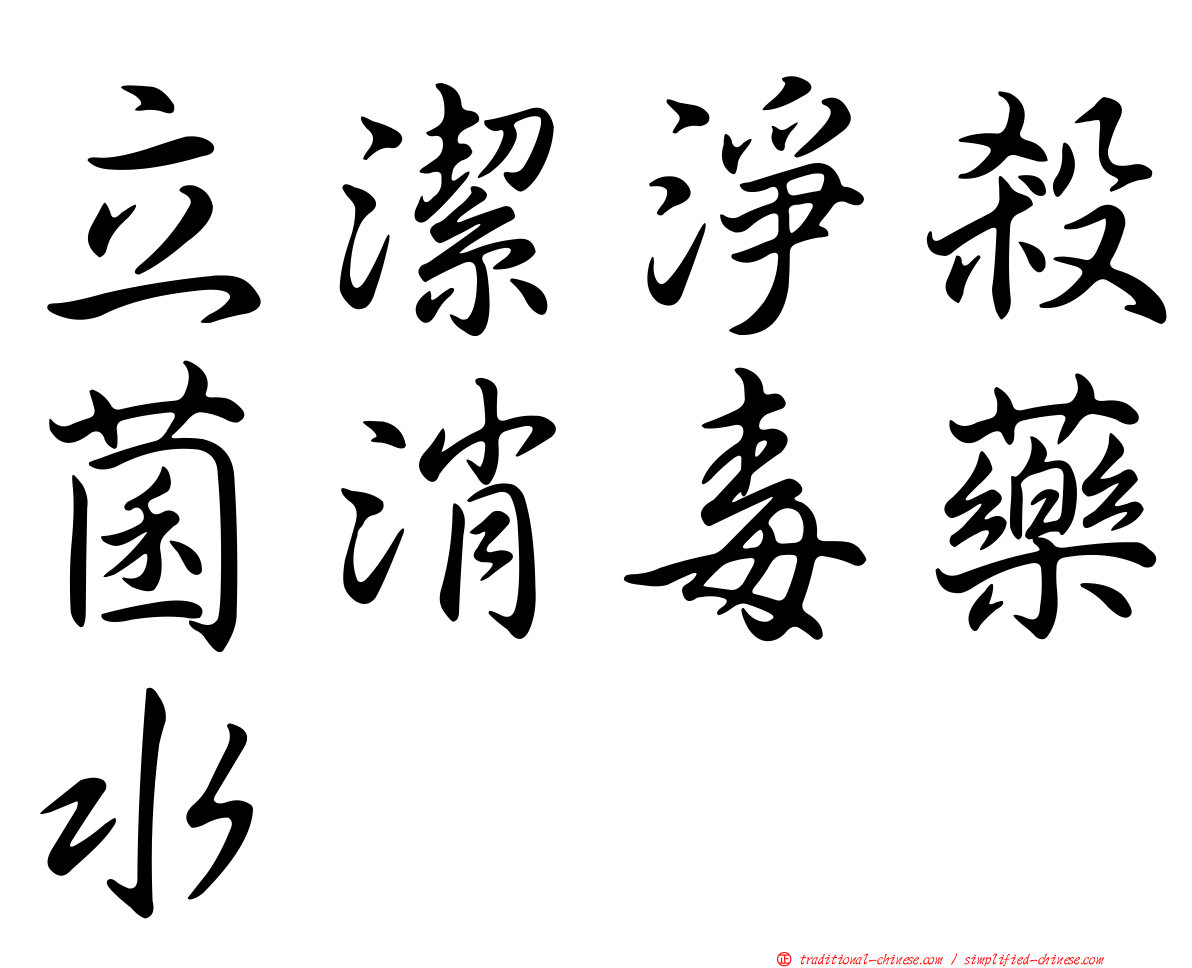 立潔淨殺
菌消毒藥
水
㊣ traditional-chinese.com / simplified-chinese.com